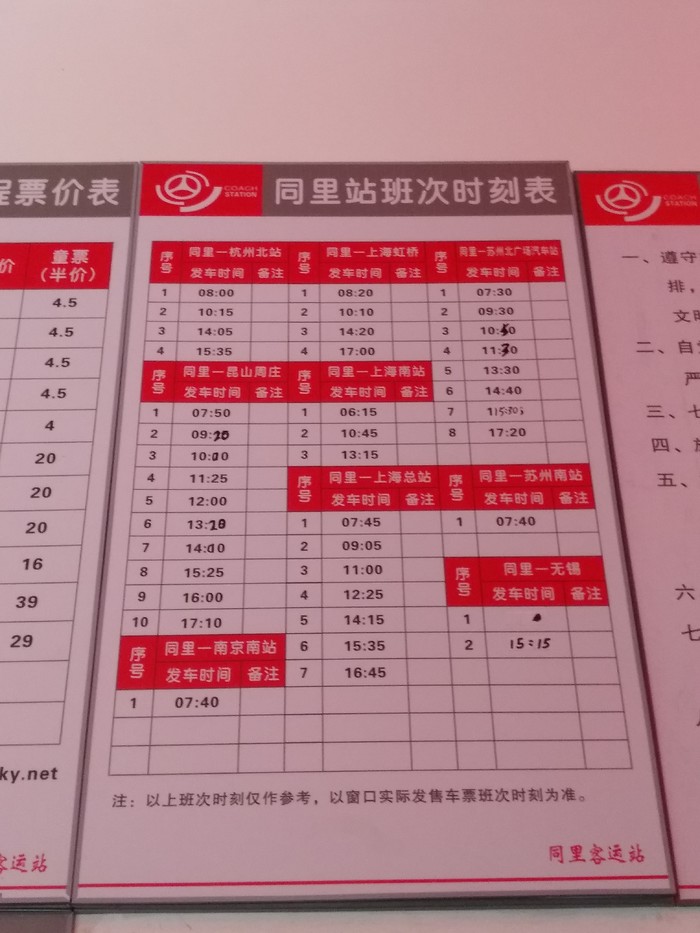 程票价表
价
童票
(半价)
4.5
4.5
4.5
4.5
4
20
20
20
16
39
29
ky.net
客运站
COACH
STATION
同里站班次时刻表
序号 同里—杭州北站
发车时间 备注
1 08:00
2 10:15
3 14:05
4 15:35
序号 同里—昆山周庄
发车时间 备注
1 07:50
2 09:20
3 10:00
4 11:25
5 12:00
6 13:20
7 14:00
8 15:25
9 16:00
10 17:10
序号 同里—南京南站
发车时间 备注
1 07:40
序号 同里—上海虹桥
发车时间 备注
1 08:20
2 10:10
3 14:20
4 17:00
序号 同里—上海南站
发车时间 备注
1 06:15
2 10:45
3 13:15
序号 同里—上海总站
发车时间 备注
1 07:45
2 09:05
3 11:00
4 12:25
5 14:15
6 15:35
7 16:45
序号 同里—苏州北广场汽车站
发车时间 备注
1 07:30
2 09:30
3 10:50
4 11:30
5 13:30
6 14:40
7
8 17:20
序号 同里—苏州南站
发车时间 备注
1 07:40
序号 同里—无锡
发车时间 备注
1
2 15:15
注：以上班次时刻仅作参考，以窗口实际发售车票班次时刻为准。
同里客运站
COACH
STATION
一、遵守
排，
文明
二、自
严
三、七
四、
五、
六
七